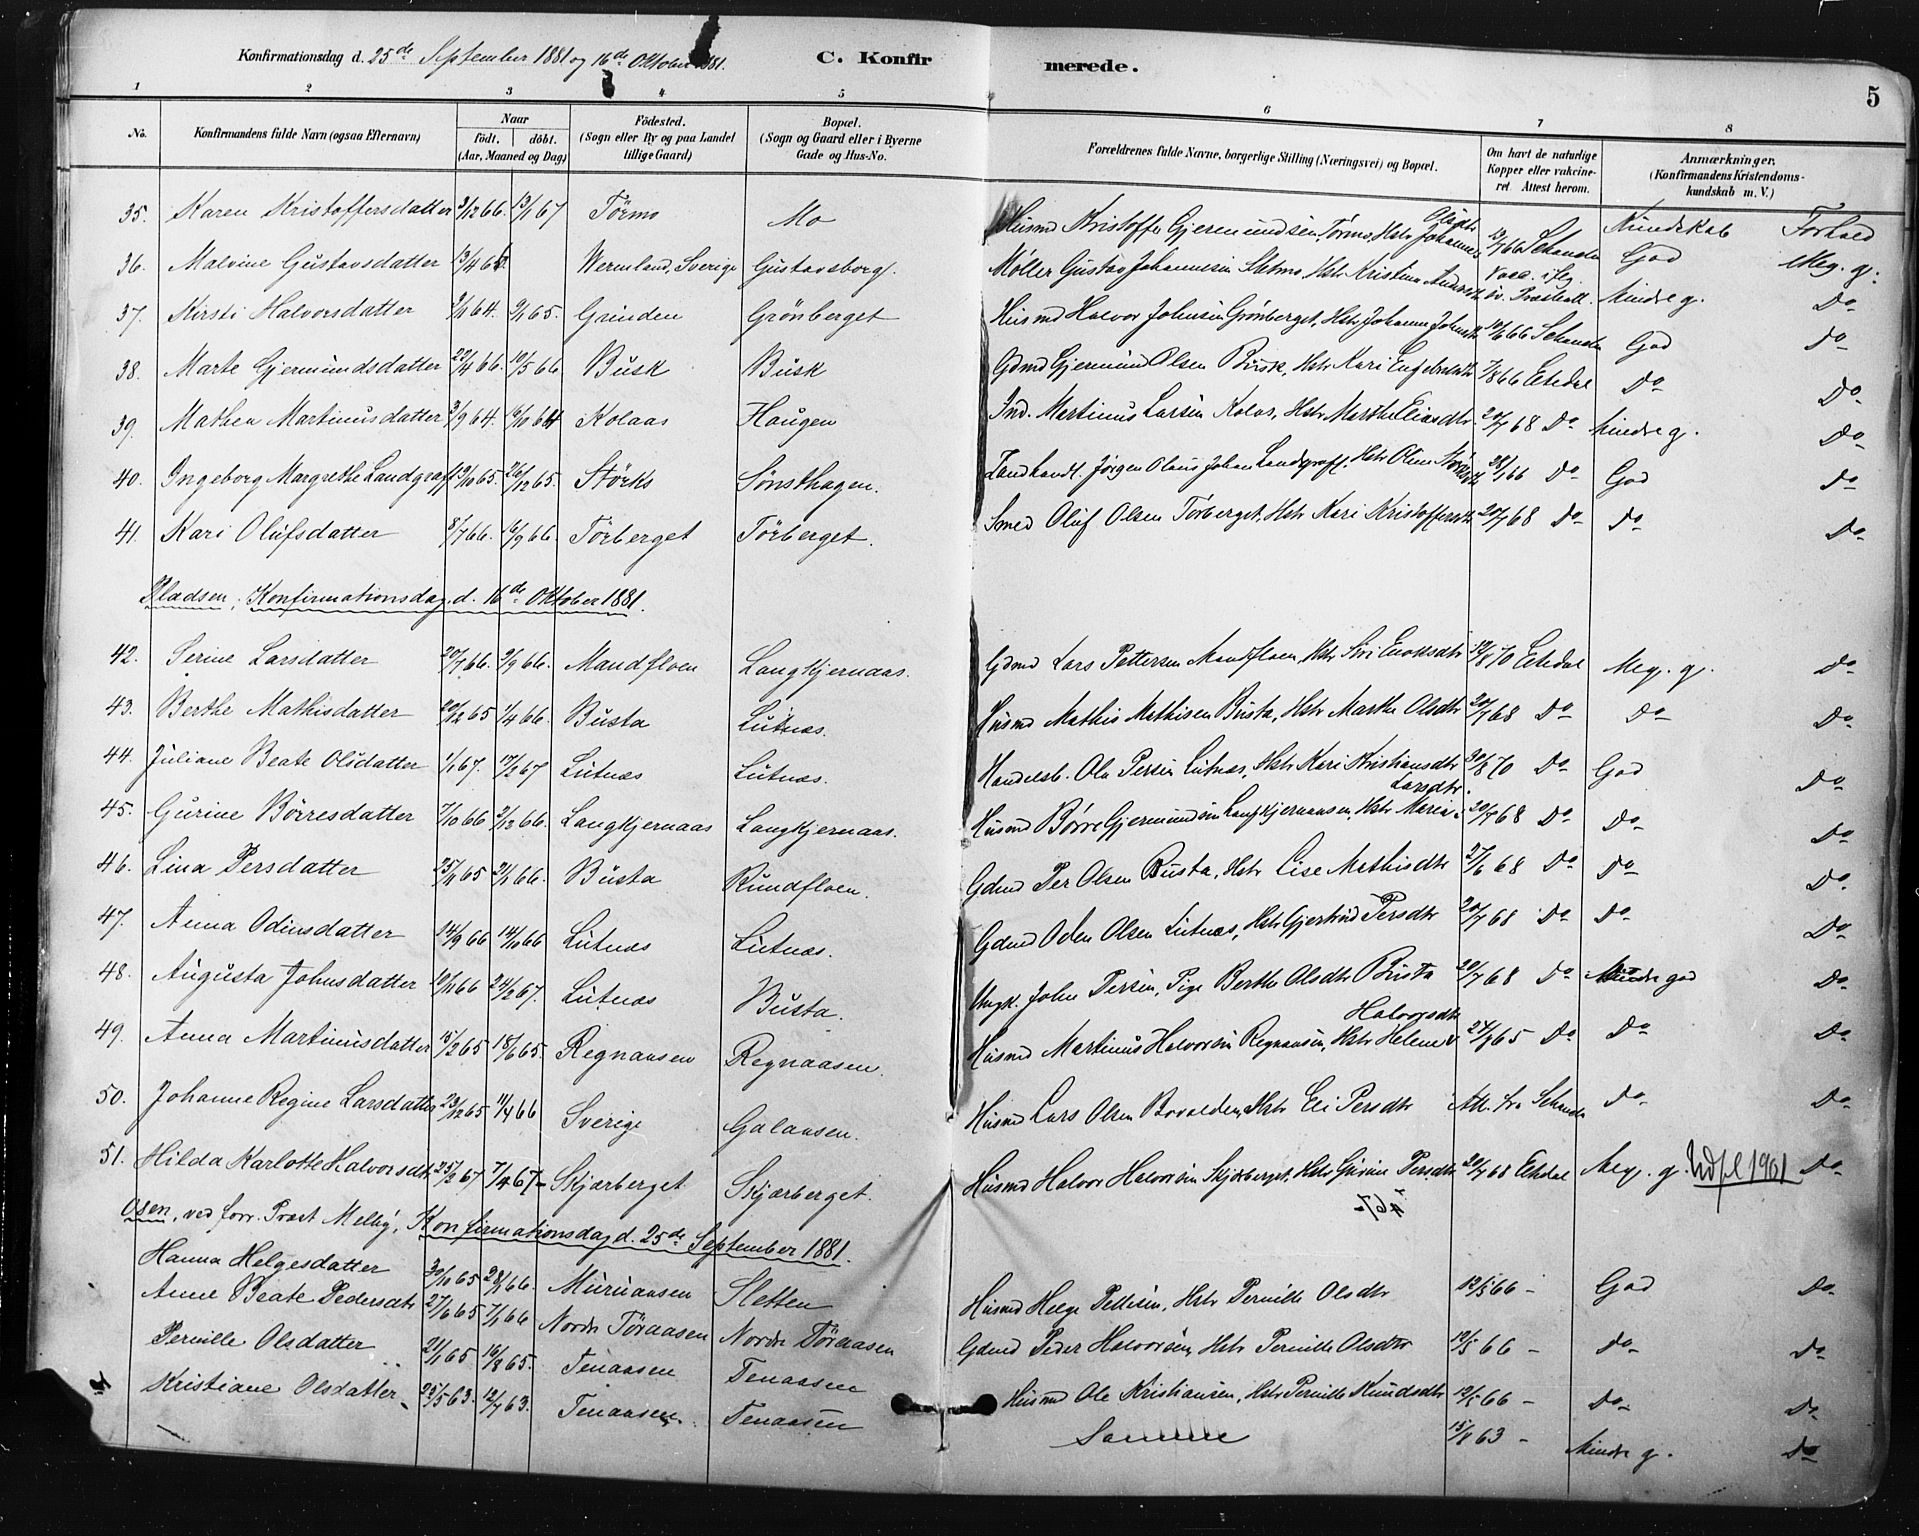 Konfirmationsdag d. 25de September 1881 og 16de Oktober 1881. C. Konfirmerede. 5
1 2 3 4 5 6 7 8
No. Konfirmandens fulde Navn (ogsaa Efternavn) Naar födt. döbt. (Aar, Maaned og Dag) Födested. (Sogn eller By og paa Landet tillige Gaard) Bopæl. (Sogn og Gaard eller i Byerne Gade og Hus-No. Forældrenes fulde Navne, borgerlige Stilling (Næringsvei) og Bopæl. Om havt de naturlige Kopper eller vakcineret. Attest herom. Anmærkninger. (Konfirmandens Kristendomskundskab m. V.)
Kundskab Forhold
35. Karen Kristoffersdatter 3/12 66. 13/1 67 Törmo Mo Husmd Kristoffer Gjermundsen Törmo, Hstr Johanne Olsdtr 13/7 66
36. Malvine Gustavsdatter 13/4 66. Wermland, Sverige Gustavsborg. Møller Gustav Johannesen Hstr Kristine God Meg. g.
37. Kirsti Halvorsdatter 64. 65. Grinden Grönberget Husmd Halvor Johnsen Grönberget, Hstr Johanne Mindre g. Do
38. Marte Gjermundsdatter 22/4 66. 10/5 66 Busk Busk Gdmd Gjermund Olsen Busk, Hstr Kari 7/8 66 Do
39. Mathea Martinusdatter 3/9 64. 6/10 64 Kolaas Haugen Ind. Martinus Larsen Kolos, Hstr Marthe Eliasdtr 20/7 68 Do Mindre g. Do
40. Ingeborg Margrethe Landgraff 19/10 65. 26/12 65. Störks Sönsthagen. Landhandl. Jörgen Olaus Johan Landgraff, Hstr Oline 66 Do God Do
41. Kari Olufsdatter 8/7 66. 16/9 66. Törberget Törberget. Smed Oluf Olsen Törberget, Hstr Kari Kristoffersdtr 20/7 68 Do Do Do
Pladsen, Konfirmationsdag d. 16de Oktober 1881.
42. Serine Larsdatter 20/7 66. 2/9 66. Mandfloen Langkjernaas. Gdmd Lars Pettersen Mandfloen, Hstr 70 Meg. g. Do
43. Berthe Mathisdatter 20/12 65 1/4 66. Busta Lutnæs. Husmd Mathis Mathisen Busta, Hstr Marthe Olsdtr 20/7 68 Do Do Do
44. Juliane Beate Olsdatter 1/1 67. 17/2 67 Lutnæs Lutnæs. Handelsb. Ole Persen Lutnæs, Hstr Kari Kristiansdtr 70 Do God Do
45. Gurine Börresdatter 7/10 66 2/12 66. Langkjernaas Langkjernaas. Husmd Börre Gjermundsen Langkjernaasen, Hstr Maria Larsdtr. 20/7 68 Do Do Do
46. Lina Persdatter 25/11 65 2/1 66. Busta Rundfloen. Gdmd Per Olsen Busta, Hstr Lise Mathisdtr 27/6 68 Do Do Do
47. Anna Odinsdatter 14/9 66 14/10 66 Lutnæs Lutnæs. Gdmd Oden Olsen Lutnæs, Hstr Gjertrud Persdtr 20/7 68 Do Do Do
48. Augusta Johnsdatter 10/11 66 24/2 67. Lutnæs Busta. Ungk. John Persen, Pige Berthe Olsdtr Busta 20/7 68 Do Mindre god Do
49. Anna Martinusdatter 15/2 65 18/6 65 Regnaasen Regnaasen. Husmd Martinus Halvorsen Regnaasen, Hstr Helene Halvorsdtr 65 Do Do Do
50. Johanne Regine Larsdatter 23/12 65 11/4 66 Sverige Galaasen. Husmd Lars Olsen Hstr Eli Persdtr Att. fra Do Do
51. Hilda Karlotte Halvorsdtr 25/2 67 7/4 67 Skjærberget Skjærberget. Husmd Halvor Halvorsen Skjærberget, Hstr Gurine Persdtr 20/7 68 Meg. g. Udfl 1901 Do
Osen, ved forr. Præst Melby. Konfirmationsdag d. 25de September 1881.
Hanna Helgesdatter 30/10 65 28/1 66. Muruaasen Sletten Husmd Helge Hstr Pernille Olsdtr 12/5 66 God Do
Anne Beate Pedersdtr 27/6 65 7/1 66 Nordre Töraasen Nordre Töraasen Gdmd Peder Halvorsen, Hstr Pernille Olsdtr 12/5 66 Do Do
Pernille Olsdatter 21/1 65 16/8 65. Tenaasen Tenaasen Husmd Ole Kristiansen, Hstr Pernille Knudsdtr 12/5 66 Do Do
Kristiane Olsdatter 25/5 63. 12/7 63. Tenaasen Tenaasen Samme 15/8 63 Mindre g. Do